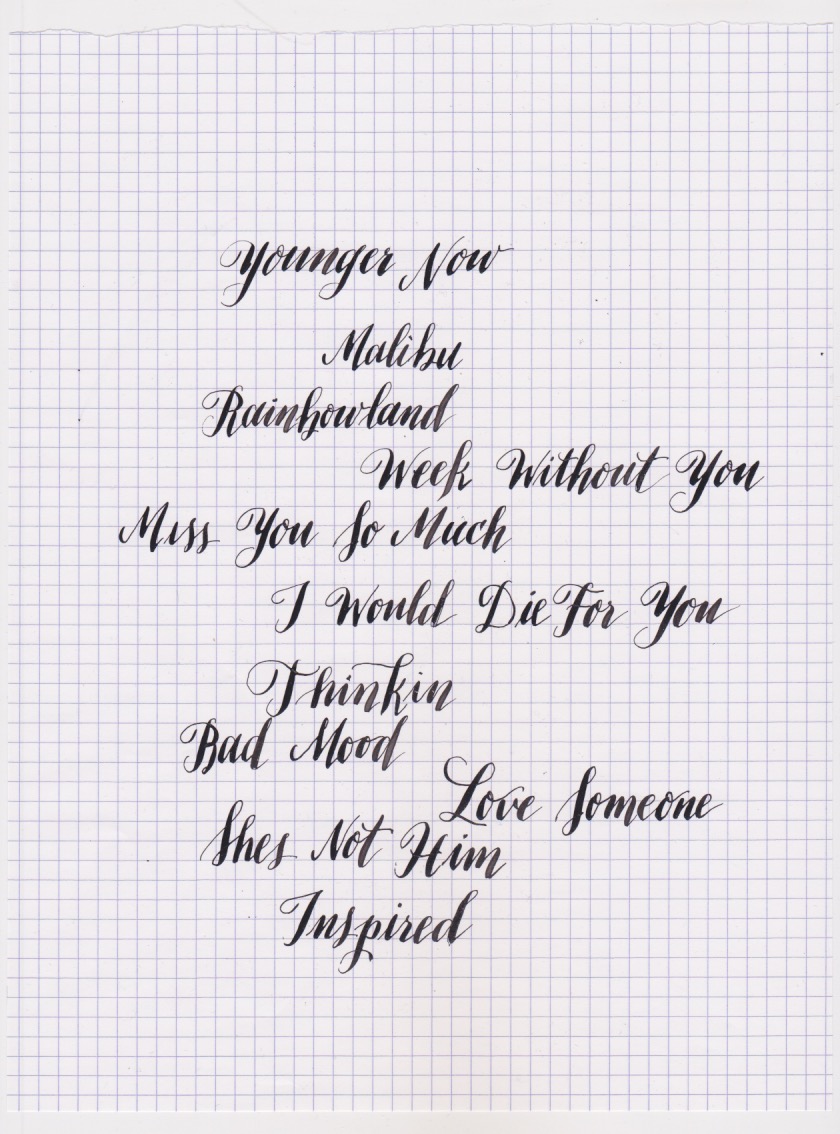 Younger Now
Malibu
Rainbowland
Week Without You
Miss You So Much
I Would Die For You
Thinkin
Bad Mood
Love Someone
Shes Not Him
Inspired